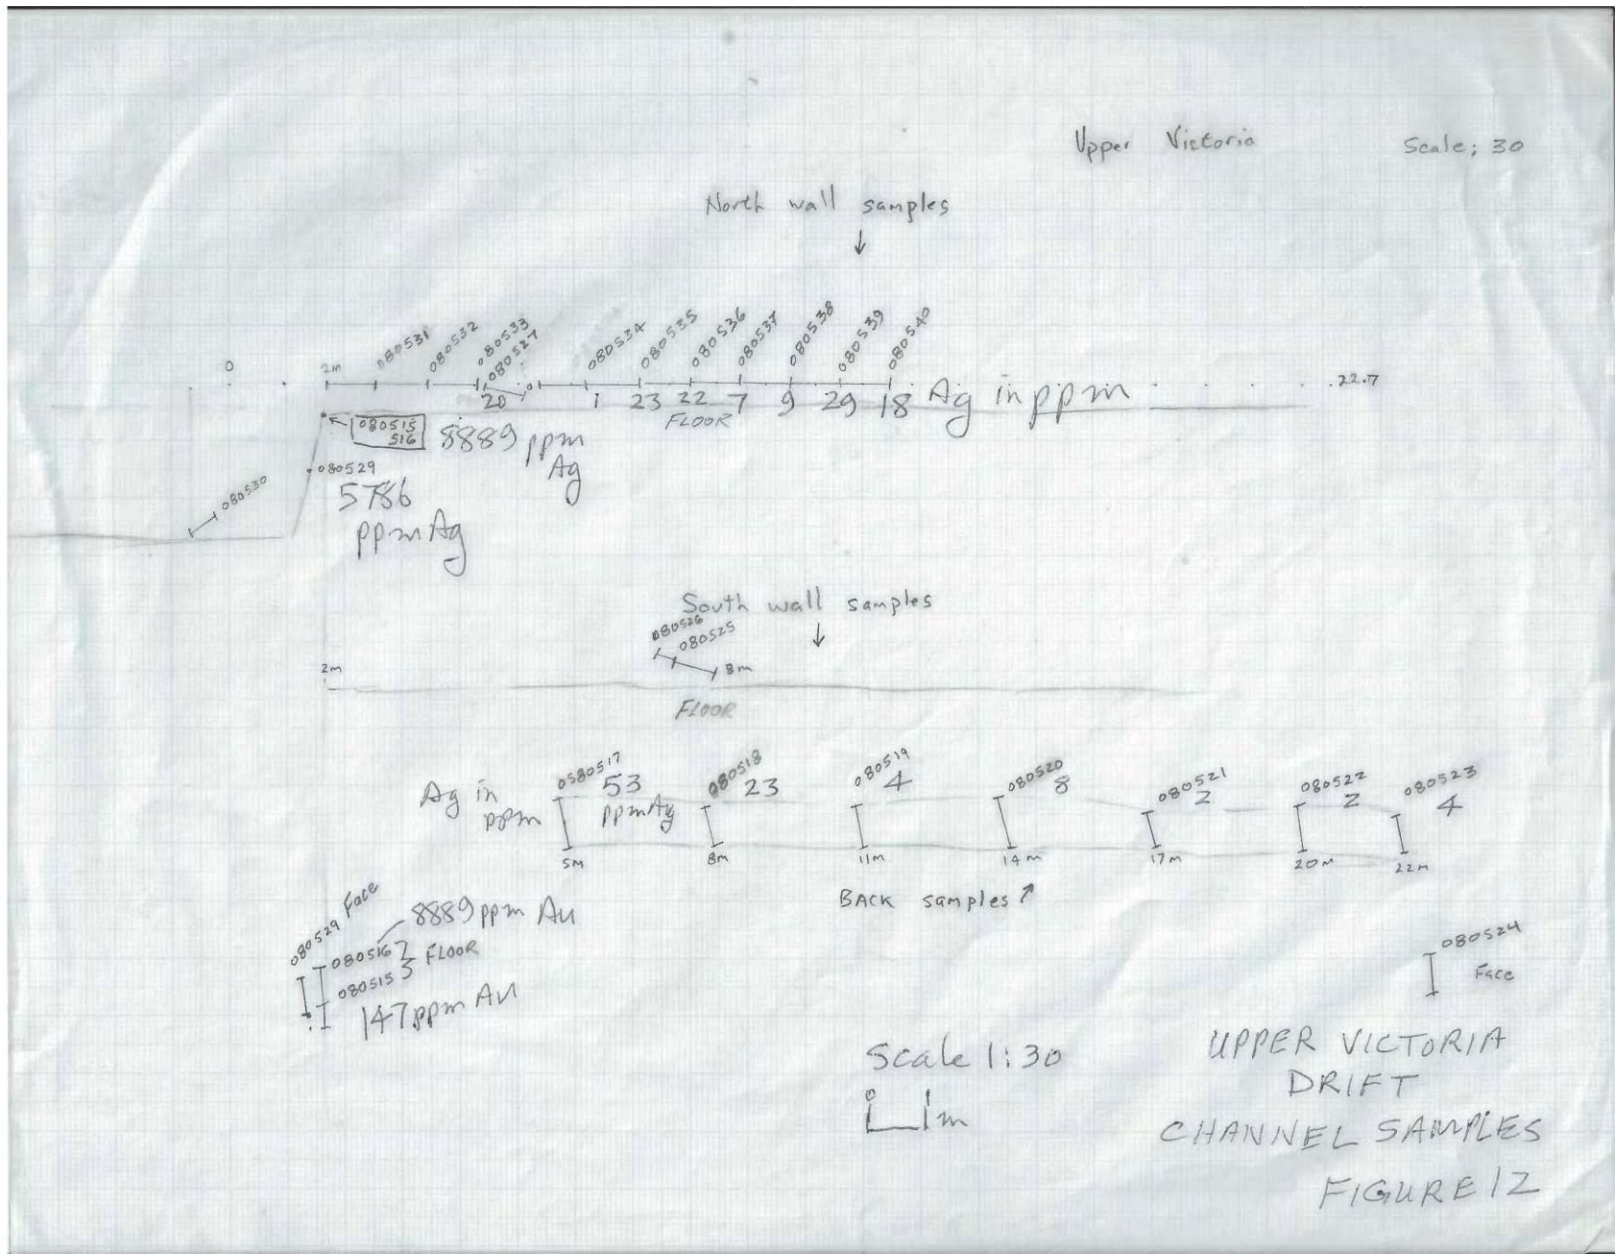 Upper Victoria Scale; 30
North wall samples
↓
080531 080532 080533 080534 080535 080536 080537 080538 080539 080540
080527
0 2m 22.7
20 1 23 22 7 9 29 18 Ag in ppm
FLOOR
080515
516
8889 ppm
Ag
080529
5786
ppm Ag
080530
South wall samples
↓
080526
080525
8m
2m
FLOOR
Ag in
ppm
0580517 080518 080519 080520 080521 080522 080523
53 23 4 8 2 2 4
ppm Ag
5m 8m 11m 14m 17m 20m 22m
BACK samples ↗
080529 Face
8889 ppm Au
080516
080515
FLOOR
147 ppm Au
080524
Face
Scale 1:30
0 1m
UPPER VICTORIA
DRIFT
CHANNEL SAMPLES
FIGURE 12